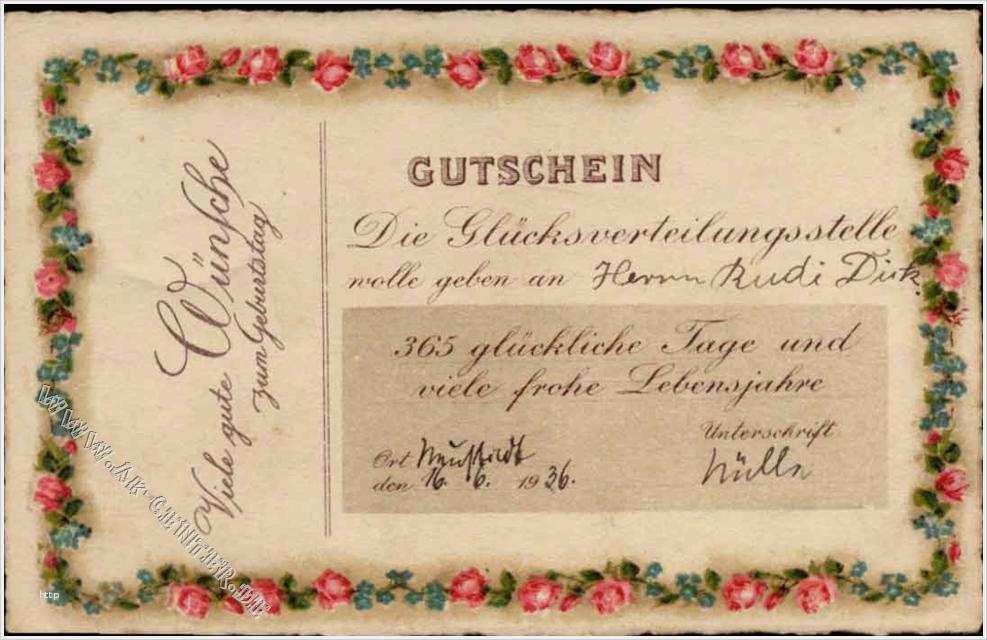 Viele gute Wünsche
zum Geburtstag
GUTSCHEIN
Die Glücksverteilungsstelle
wolle geben an Herrn Rudi Dirk.
365 glückliche Tage und
viele frohe Lebensjahre
Unterschrift
Ort Neustadt
den 16. 6. 1936.
WWW.AK-CENTER.DE
http